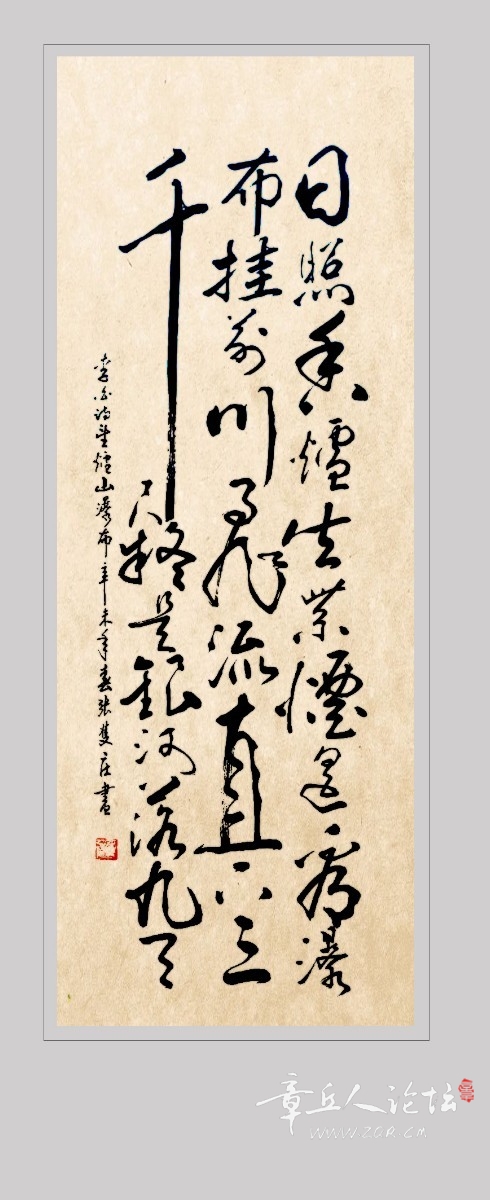 日照香爐生紫煙遙看瀑
布挂前川飛流直下三
千尺疑是銀河落九天
李白诗望爐山瀑布辛未年春张雙庄書
章丘人论坛
WWW.ZQR.CM